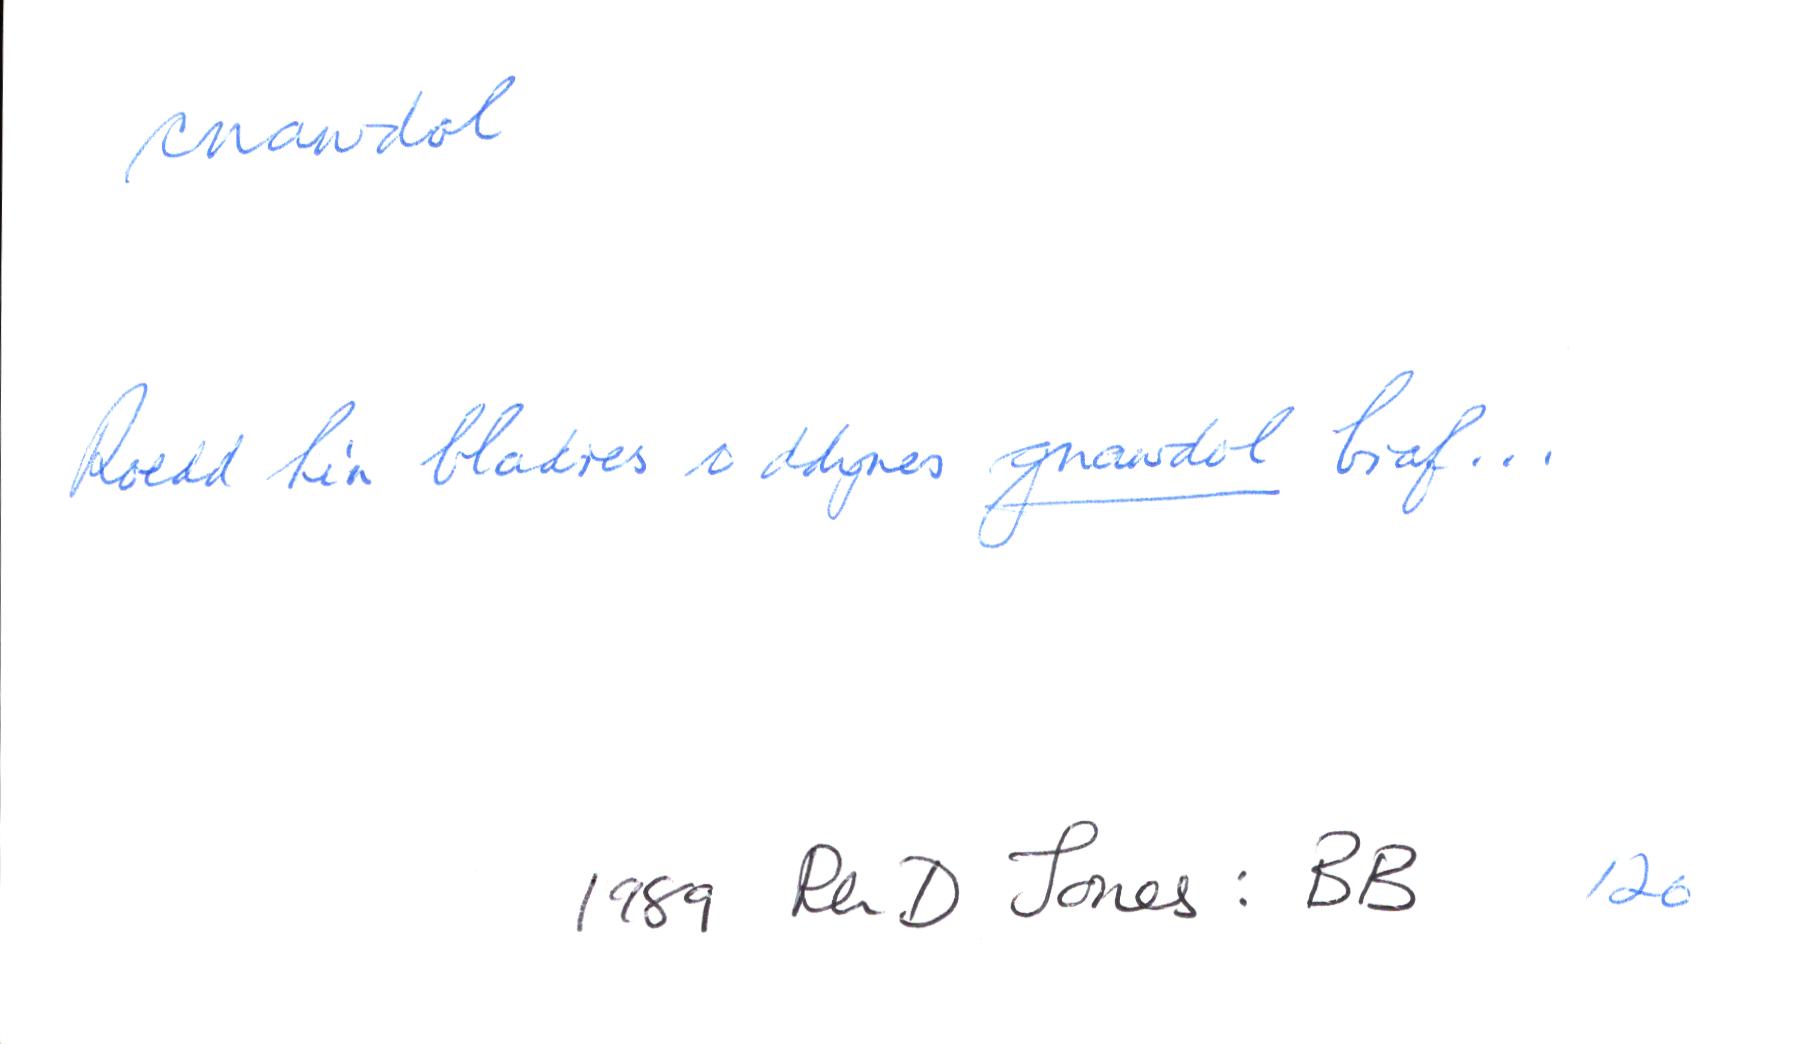 cnawdol
Roedd hin bladres o ddynes gnawdol braf...
1989 Rh D Jones: BB 120